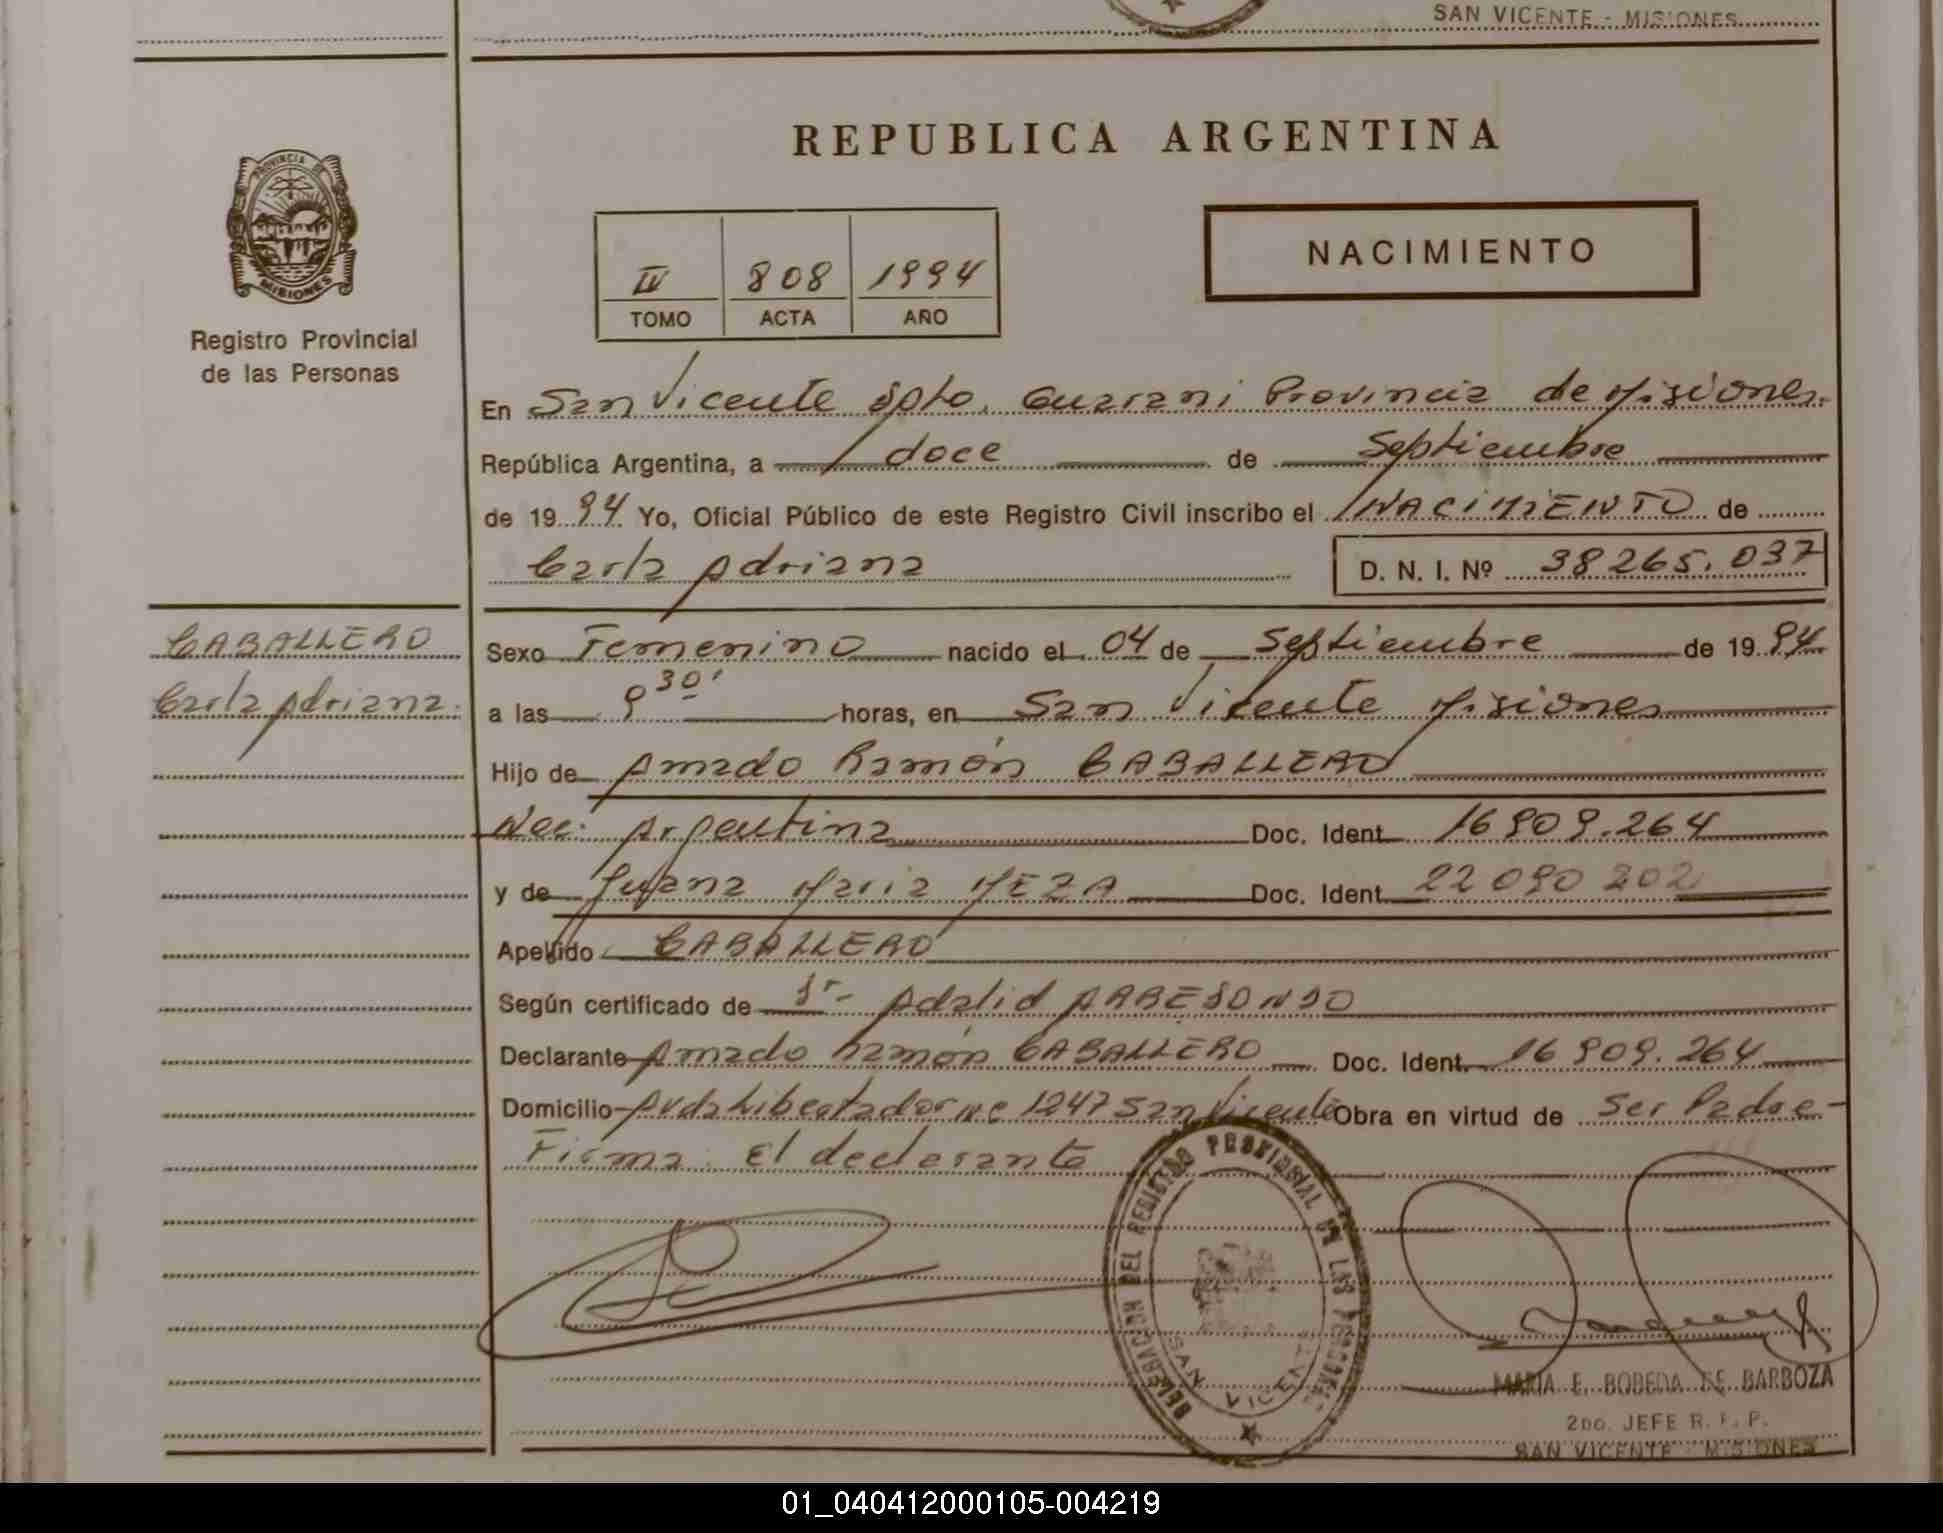 SAN VICENTE - MISIONES
REPUBLICA ARGENTINA
PROVINCIA DE
MISIONES
Registro Provincial
de las Personas
NACIMIENTO
IV 808 1994
TOMO ACTA AÑO
En San Vicente Dpto. Guarani Provincia de Misiones.
República Argentina, a doce de Septiembre
de 1994 Yo, Oficial Público de este Registro Civil inscribo el NACIMIENTO de
Carla Adriana
D. N. I. Nº 38265.037
CABALLERO
Carla Adriana.
Sexo Femenino nacido el 04 de Septiembre de 1994
a las 9 30' horas, en San Vicente Misiones
Hijo de Amado Ramón CABALLERO
Nac. Argentina Doc. Ident. 16909.264
y de Juana Maria MEZA Doc. Ident. 22090202
Apellido CABALLERO
Según certificado de Dr- Adalid ARREDONDO
Declarante Amado Ramón CABALLERO Doc. Ident. 16909.264
Domicilio Avda Libertador Nº 1247 San Vicente Obra en virtud de Ser Padre-
Firma: El declarante
DELEGACION DEL REGISTRO PROVINCIAL DE LAS PERSONAS
SAN VICENTE
MARIA E. BOBEDA DE BARBOZA
2DO. JEFE R. P. P.
SAN VICENTE - MISIONES
01_040412000105-004219